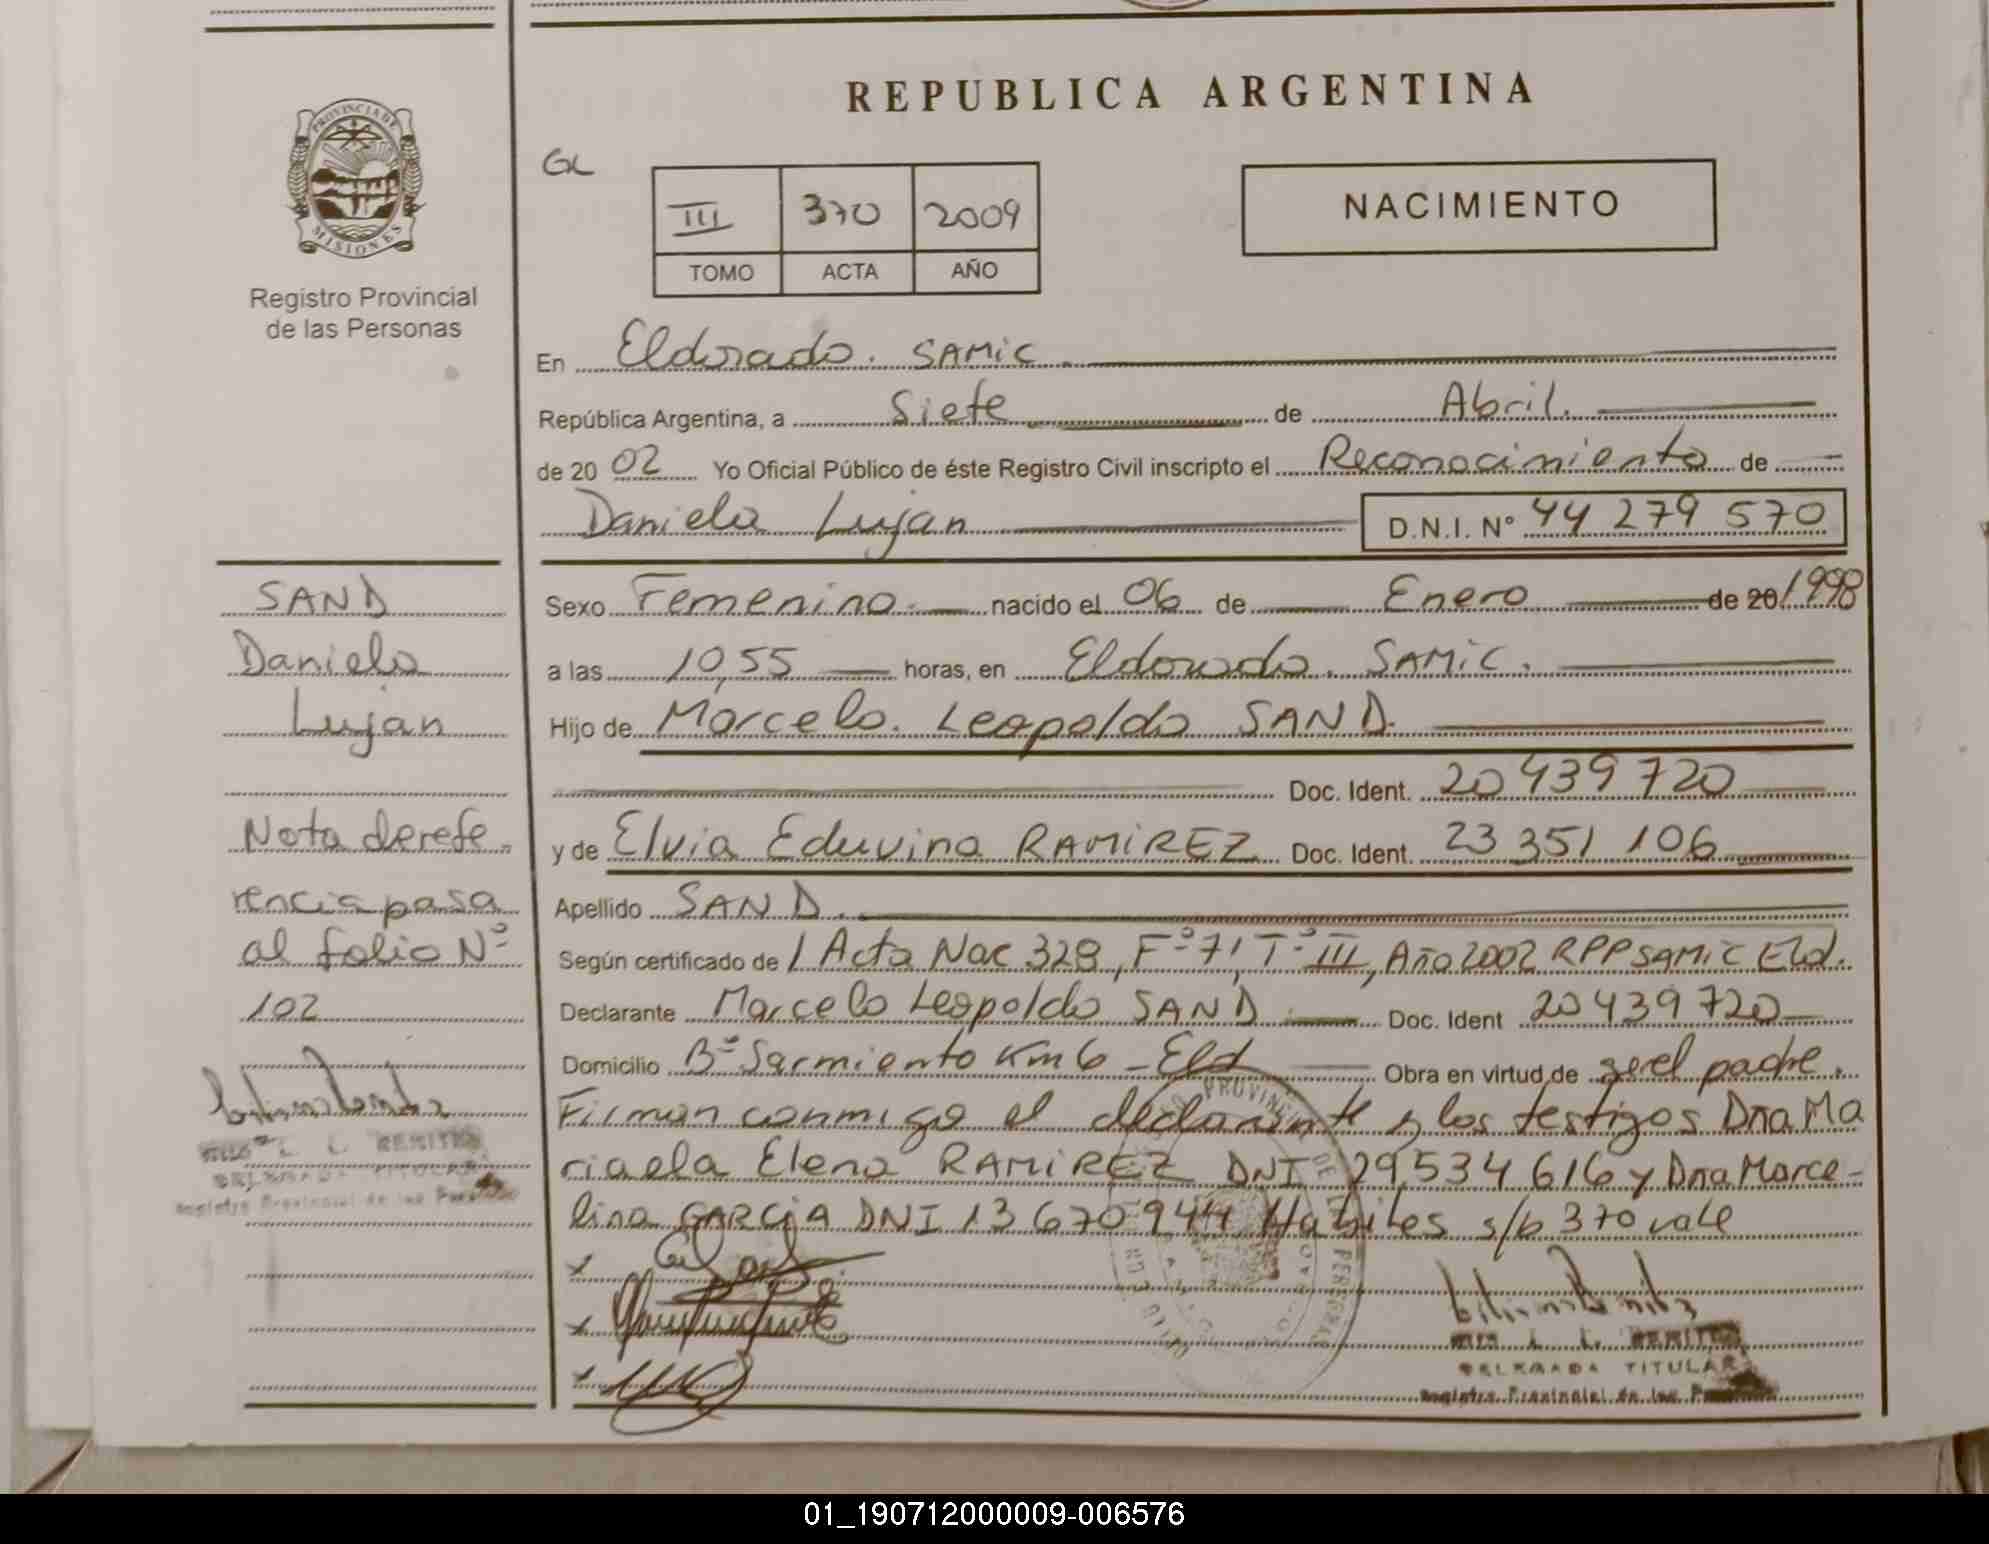 REPUBLICA ARGENTINA
PROVINCIA DE
MISIONES
Registro Provincial
de las Personas
GL
III 370 2009
TOMO ACTA AÑO
NACIMIENTO
En Eldorado. SAMIC.
República Argentina, a Siete de Abril.
de 20 02 Yo Oficial Público de éste Registro Civil inscripto el Reconocimiento de
Daniela Lujan D.N.I. N° 44 279 570
Sexo Femenino. nacido el 06 de Enero de 20 1998
a las 10,55 horas, en Eldorado. SAMIC.
Hijo de Marcelo. Leopoldo SAND.
Doc. Ident. 20 439 720
y de Elvia Eduvina RAMIREZ Doc. Ident. 23 351 106
Apellido SAND.
Según certificado de 1 Acta Nac 328, F° 71, T° III, Año 2002 RPP SAMIC Eld.
Declarante Marcelo Leopoldo SAND Doc. Ident 20 439 720
Domicilio B° Sarmiento Km 6 - Eld Obra en virtud de ser el padre.
Firman conmigo el declarante y los testigos Dña Ma
riaela Elena RAMIREZ DNI 29,534 616 y Dna Marce-
lina GARCIA DNI 13 670 944 Habiles s/b 370 vale
x
x
x
SAND
Daniela
Lujan
Nota de refe-
rencia pasa
al folio N°
102
L. L. BENITEZ
DELEGADA TITULAR
Registro Provincial de las Personas
L. L. BENITEZ
DELEGADA TITULAR
Registro Provincial de las P
01_190712000009-006576